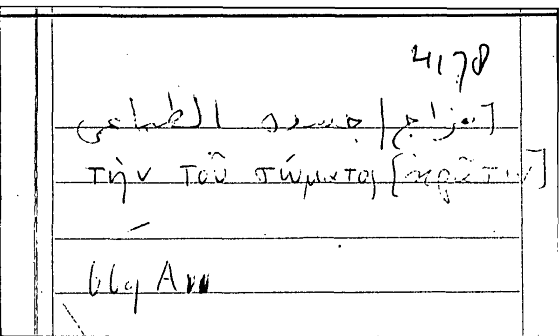 4178
[مزاج] جسده الطباعى
τὴν τοῦ σώματος [κρᾶσιν]